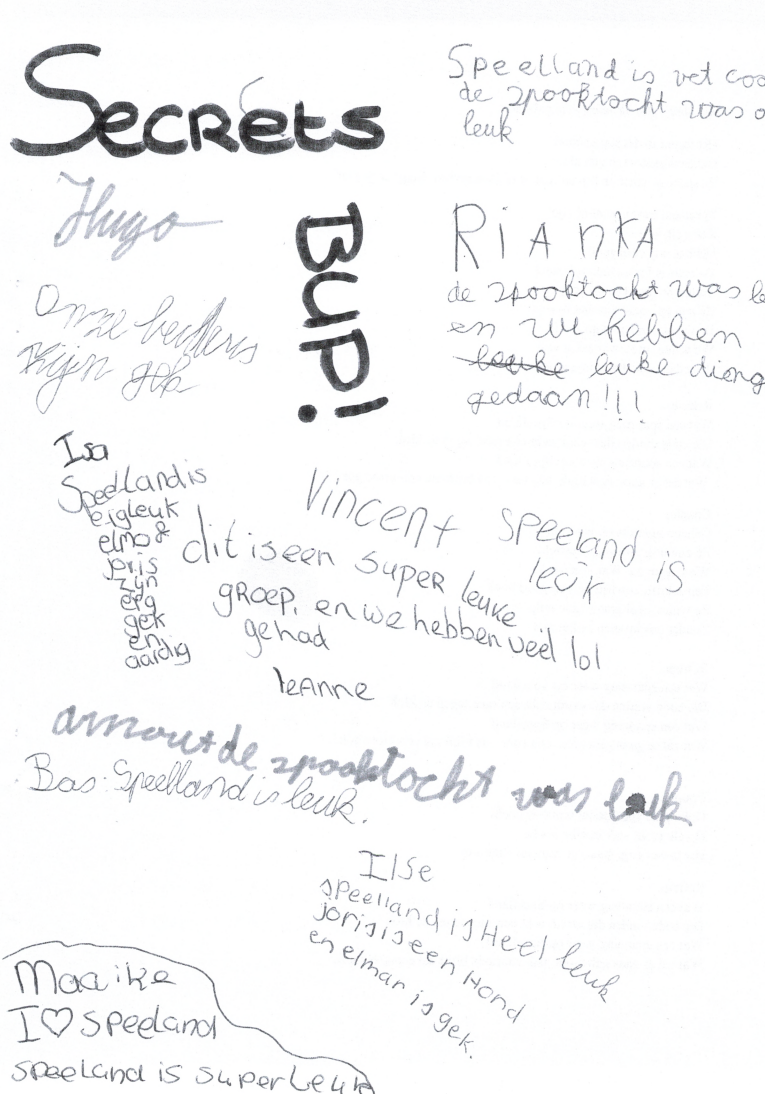 Secrets
Speelland is vet
de spooktocht was
leuk
Hugo
BUP!
Onze
zijn gek
RiAnKA
de spooktocht was
en we hebben
leuke leuke
gedaan!!!
Isa
Speellandis
ergleuk
elmo &
joris
zijn
erg
gek
en
aardig
Vincent speeland is
leuk
dit is een super leuke
groep, en we hebben veel lol
gehad
leAnne
arnout de spooktocht was leuk
Bas: Speelland is leuk.
Ilse
speelland is Heel leuk
joris is een Hond
en elmar is gek.
Maaike
I♡speeland
speeland is superleuk